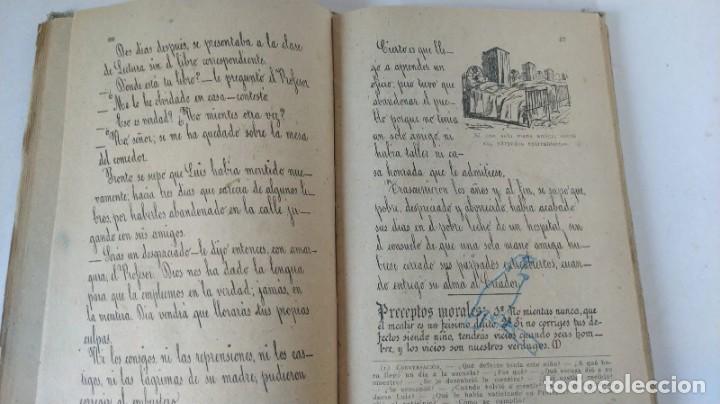 Dos días después, se presentaba a la clase
de Lectura sin el libro correspondiente.
—¿Dónde está tu libro?—le preguntó el Profesor
—Me lo he olvidado en casa—contestó
—¿Eso es verdad? ¿No mientes otra vez?
—No señor; se me ha quedado sobre la mesa
del comedor.
Pronto se supo que Luis había mentido nue-
vamente; hacía tres días que carecía de algunos li-
bros, por haberlos abandonado en la calle ju-
gando con sus amigos.
—Serás un desgraciado—le dijo entonces, con amar-
gura, el Profesor. Dios nos ha dado la lengua
para que la empleemos en la verdad; jamás, en
la mentira. Día vendrá que llorarás tus propias
culpas.
Ni los consejos, ni las reprensiones, ni los cas-
tigos, ni las lágrimas de su madre, pudieron
corregir al embustero.
67
Cierto es que lle-
gó a aprender un
oficio; pero tuvo que
abandonar el pue-
blo porque no tenía
un solo amigo, ni
había taller ni ca-
sa honrada que le admitiese.
Ni una sola mano amiga, cerró
sus párpados entreabiertos.
Trascurrieron los años y al fin, se supo que,
pobre, despreciado y abroncado había acabado
sus días en el pobre lecho de un hospital, sin
el consuelo de que una sola mano amiga hu-
biese cerrado sus párpados entreabiertos, cuan-
do entregó su alma al Creador.
Preceptos morales: 1º No mientas nunca, que
el mentir es un feísimo delito. 2º Si no corriges tus de-
fectos siendo niño, tendrás vicios cuando seas hom-
bre, y los vicios son nuestros verdugos. (1)
(1) CONVERSACIÓN. — ¿Qué defecto tenía este niño? — ¿A qué ho-
ra llegó un día a la escuela? — ¿Por qué? — ¿Qué excusa dió a su
maestro? — ¿Se le descubrió la mentira? —